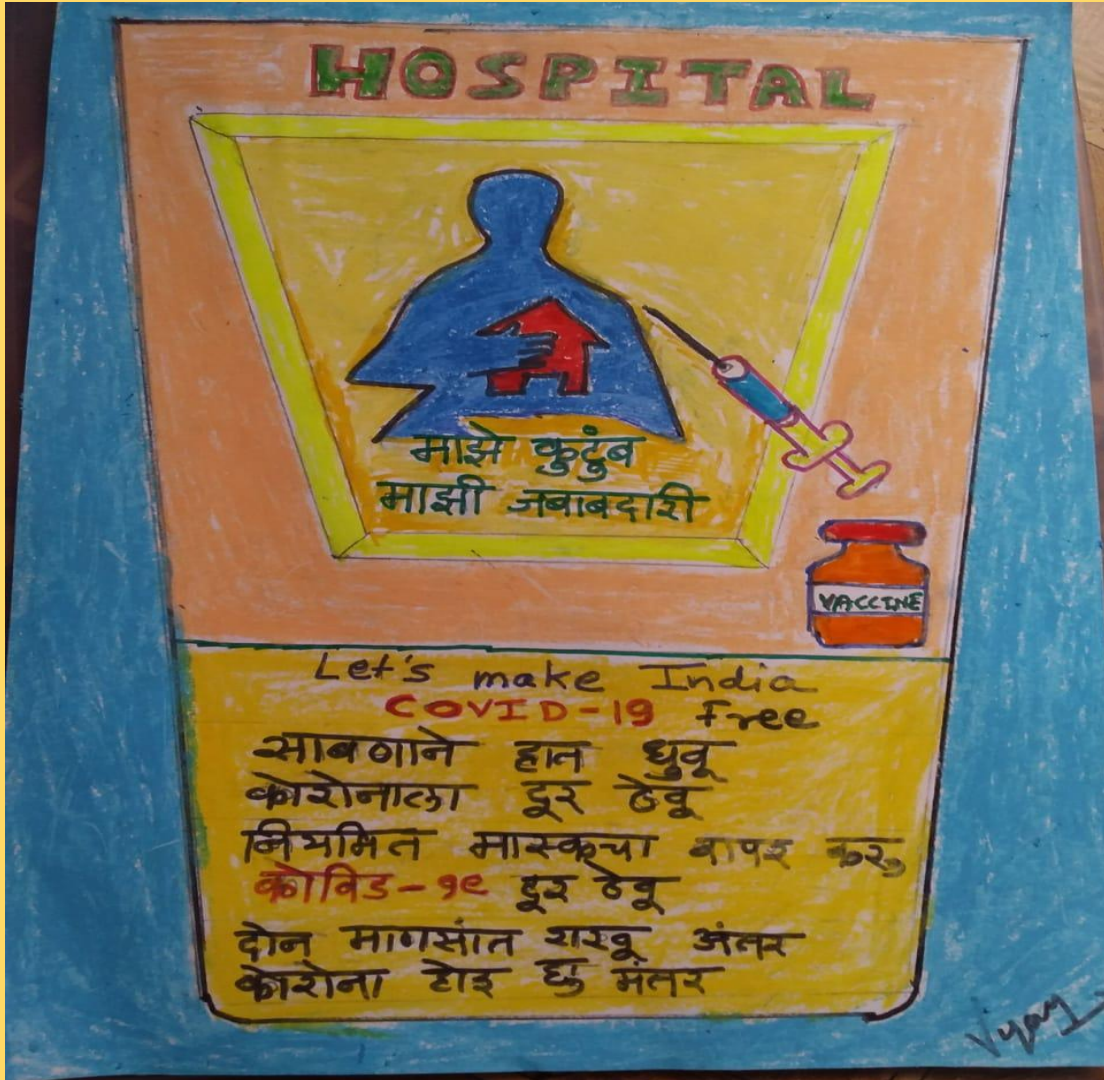 HOSPITAL
माझे कुटुंब
माझी जबाबदारी
VACCINE
Let's make India
COVID-19 free
साबणाने हात धुवू
कोरोनाला दूर ठेवू
नियमित मास्कचा वापर करु
कोविड-१९ दूर ठेवू
दोन माणसांत राखू अंतर
कोरोना होइ छु मंतर
Vijay